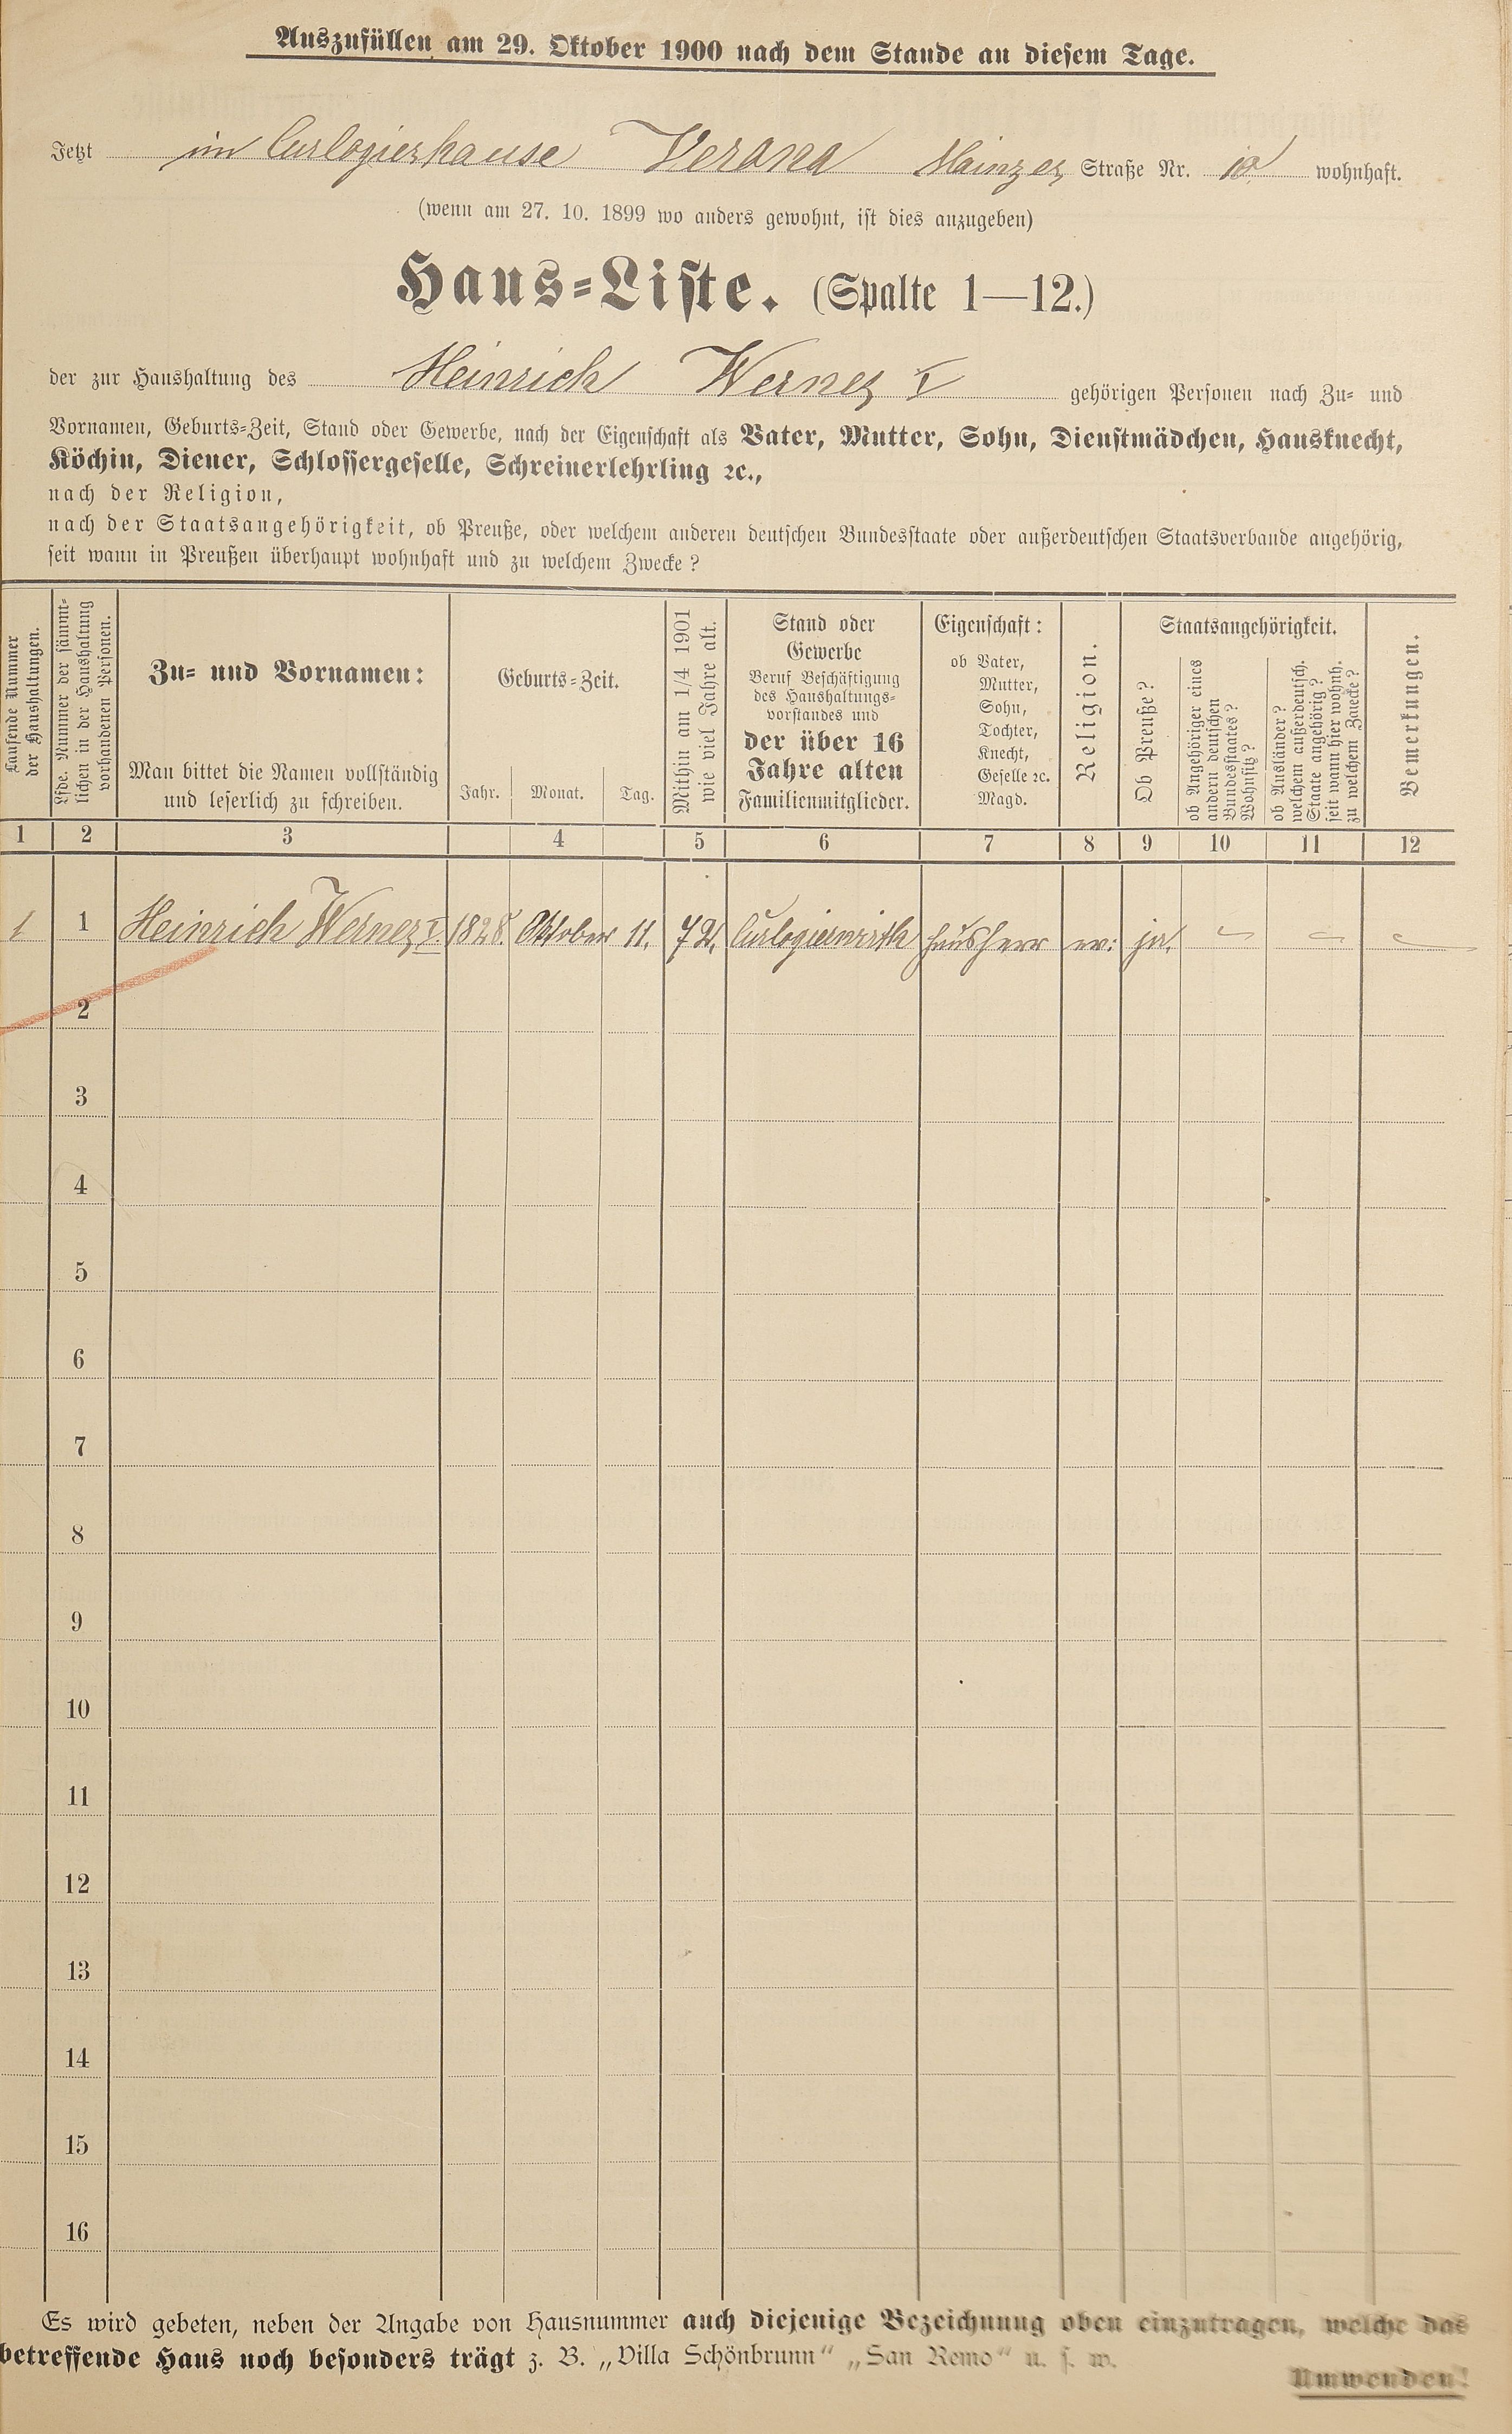 Auszufüllen am 29. Oktober 1900 nach dem Stande an diesem Tage.
Jetzt im Curlogierhause Verona Mainzer Straße Nr. wohnhaft.
(wenn am 27. 10. 1899 wo anders gewohnt, ist dies anzugeben)
Haus-Liste. (Spalte 1—12.)
der zur Haushaltung des Heinrich Werner I gehörigen Personen nach Zu- und
Vornamen, Geburts-Zeit, Stand oder Gewerbe, nach der Eigenschaft als Vater, Mutter, Sohn, Dienstmädchen, Hausknecht,
Köchin, Diener, Schlossergeselle, Schreinerlehrling ꝛc.,
nach der Religion,
nach der Staatsangehörigkeit, ob Preuße, oder welchem anderen deutschen Bundesstaate oder außerdeutschen Staatsverbande angehörig,
seit wann in Preußen überhaupt wohnhaft und zu welchem Zwecke?
Laufende Nummer
der Haushaltungen.
Lfde. Nummer der sämmt-
lichen in der Haushaltung
vorhandenen Personen.
Zu- und Vornamen:
Man bittet die Namen vollständig
und leserlich zu schreiben.
Geburts-Zeit.
Jahr. Monat. Tag.
Mithin am 1/4 1901
wie viel Jahre alt.
Stand oder
Gewerbe
Beruf Beschäftigung
des Haushaltungs-
vorstandes und
der über 16
Jahre alten
Familienmitglieder.
Eigenschaft:
ob Vater,
Mutter,
Sohn,
Tochter,
Knecht,
Geselle ꝛc.
Magd.
Religion.
Staatsangehörigkeit.
Ob Preuße?
ob Angehöriger eines
andern deutschen
Bundesstaates?
Wohnsitz?
ob Ausländer?
welchem außerdeutsch.
Staate angehörig?
seit wann hier wohnh.
zu welchem Zwecke?
Bemerkungen.
1 2 3 4 5 6 7 8 9 10 11 12
1 1 Heinrich Werner I. 1828. Oktober 11. 72. Curlogierwirth Hausherr ev: ja.
2
3
4
5
6
7
8
9
10
11
12
13
14
15
16
Es wird gebeten, neben der Angabe von Hausnummer auch diejenige Bezeichnung oben einzutragen, welche das
betreffende Haus noch besonders trägt z. B. „Villa Schönbrunn“ „San Remo“ u. s. w.
Umwenden!